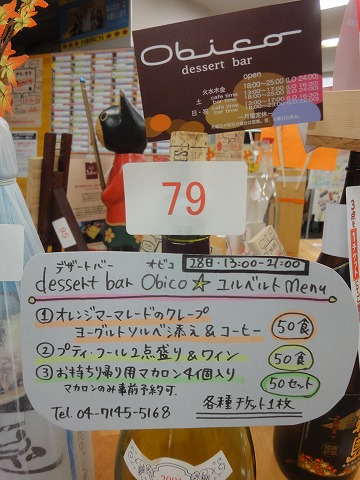 Obico
dessert bar
open
火水木金
cafe time 18:00~25:00 (LO 24:00)
土
cafe time 13:00~17:00 (LO 16:30)
bar time 18:00~25:00 (LO 24:00)
日・祝
79
デザートバー オビコ 28日・13:00-21:00
dessert bar Obico☆ユルベルトMenu
①オレンジマーマレードのクレープ
ヨーグルトソルベ添え&コーヒー 50食
②プティ・フール2点盛り&ワイン 50食
③お持ち帰り用マカロン4個入り 50セット
マカロンのみ事前予約可.
Tel. 04-7145-5168 各種チケット1枚